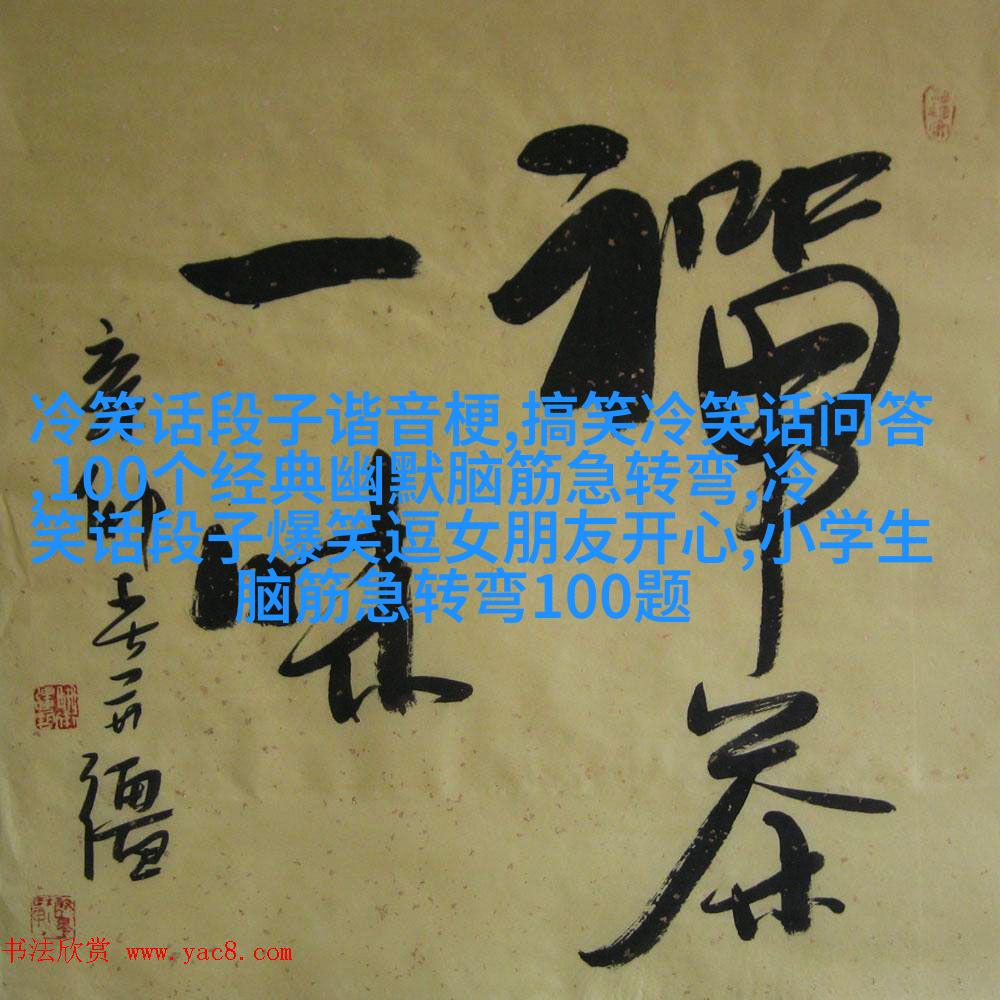 禪茶
一味
冷笑话段子谐音梗,搞笑冷笑话问答
,100个经典幽默脑筋急转弯,冷
笑话段子爆笑逗女朋友开心,小学生
脑筋急转弯100题
书法欣赏 www.yac8.com